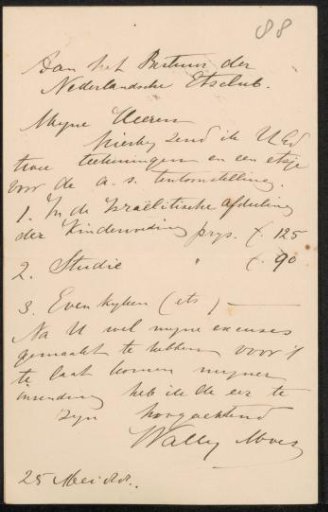 88
Aan het Bestuur der
Nederlandsche Etsclub.
Mijne Heeren
Hierbij zend ik UEd
twee teekeningen en een etsje
voor de a.s. tentoonstelling.
1. In de Israëlitische afdeeling
der Kindervoeding prijs. f. 125
2. Studie " f. 90
3. Even kijken (ets) —
Na U wel mijne excuses
gemaakt te hebben voor 't
te laat komen mijner
inzending heb ik de eer te
zijn hoogachtend
Wally Moes
25 Mei 88.